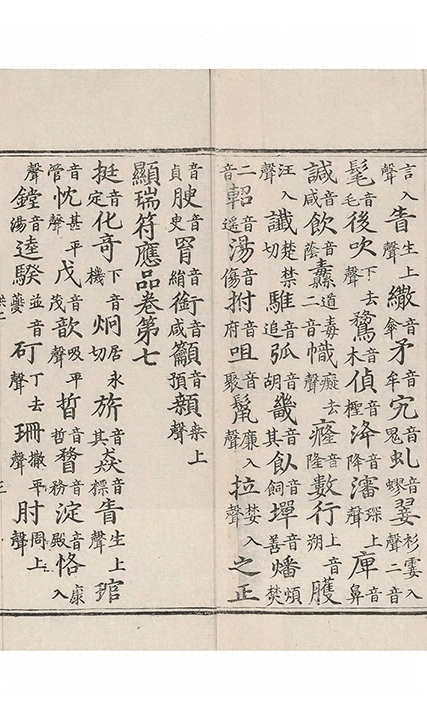 言入聲眚生上聲繖音傘矛音牟宄音鬼虬音蟉翣杉霎入聲二音
髦音毛後吹下去聲騖音木偵音檉洚音降瀋琛上聲庫音鼻
諴音咸飲音蔭纛音道毒二音幟癡去聲癃音隆數行上音朔臒
汪入聲讖楚禁切騅音追弧音胡畿音其飤音飼墠音善燔音煩焚
二音軺音遥湯音傷拊音府咀音聚鬣廉入聲拉婪入聲之正
音貞腴音臾罥音絹銜音咸籲音預顙音桑上聲
顯瑞符應品卷第七
挺音定化奇下音機炯居永切旂音其猋音標眚生上聲琯
音管忱甚平聲戊音茂歆吸平聲晢音哲瞀音務淀音殿恪康入
聲鏜音湯逵騤並音夔矴丁去聲珊撒平聲肘周上聲